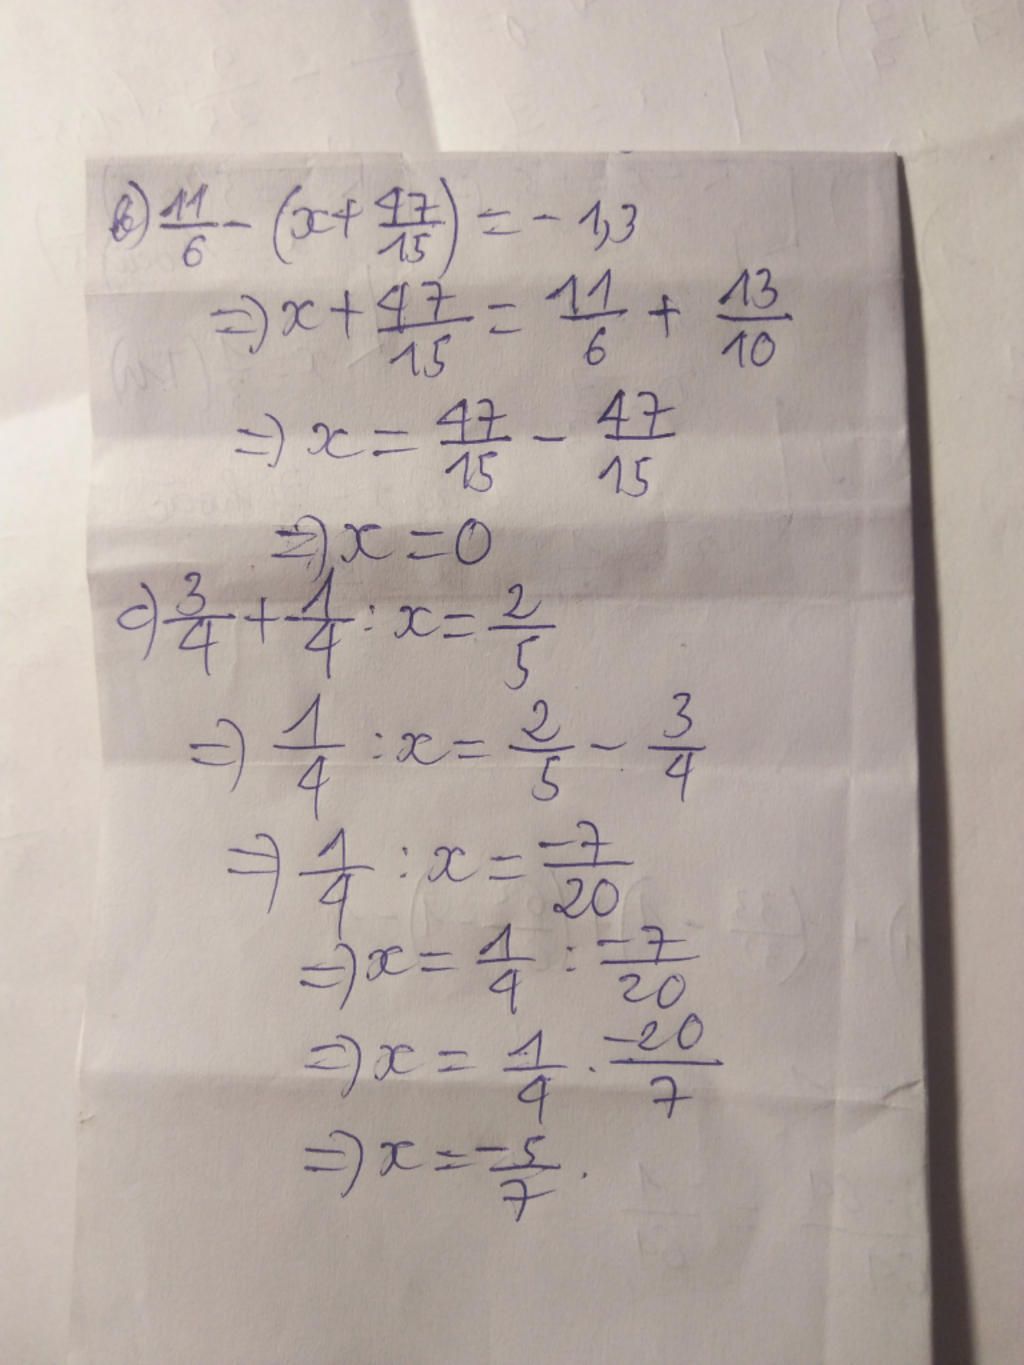 b) 11/6 - (x + 47/15) = - 1,3
=> x + 47/15 = 11/6 + 13/10
=> x = 47/15 - 47/15
=> x = 0
c) 3/4 + 1/4 : x = 2/5
=> 1/4 : x = 2/5 - 3/4
=> 1/4 : x = -7/20
=> x = 1/4 : -7/20
=> x = 1/4 . -20/7
=> x = -5/7.